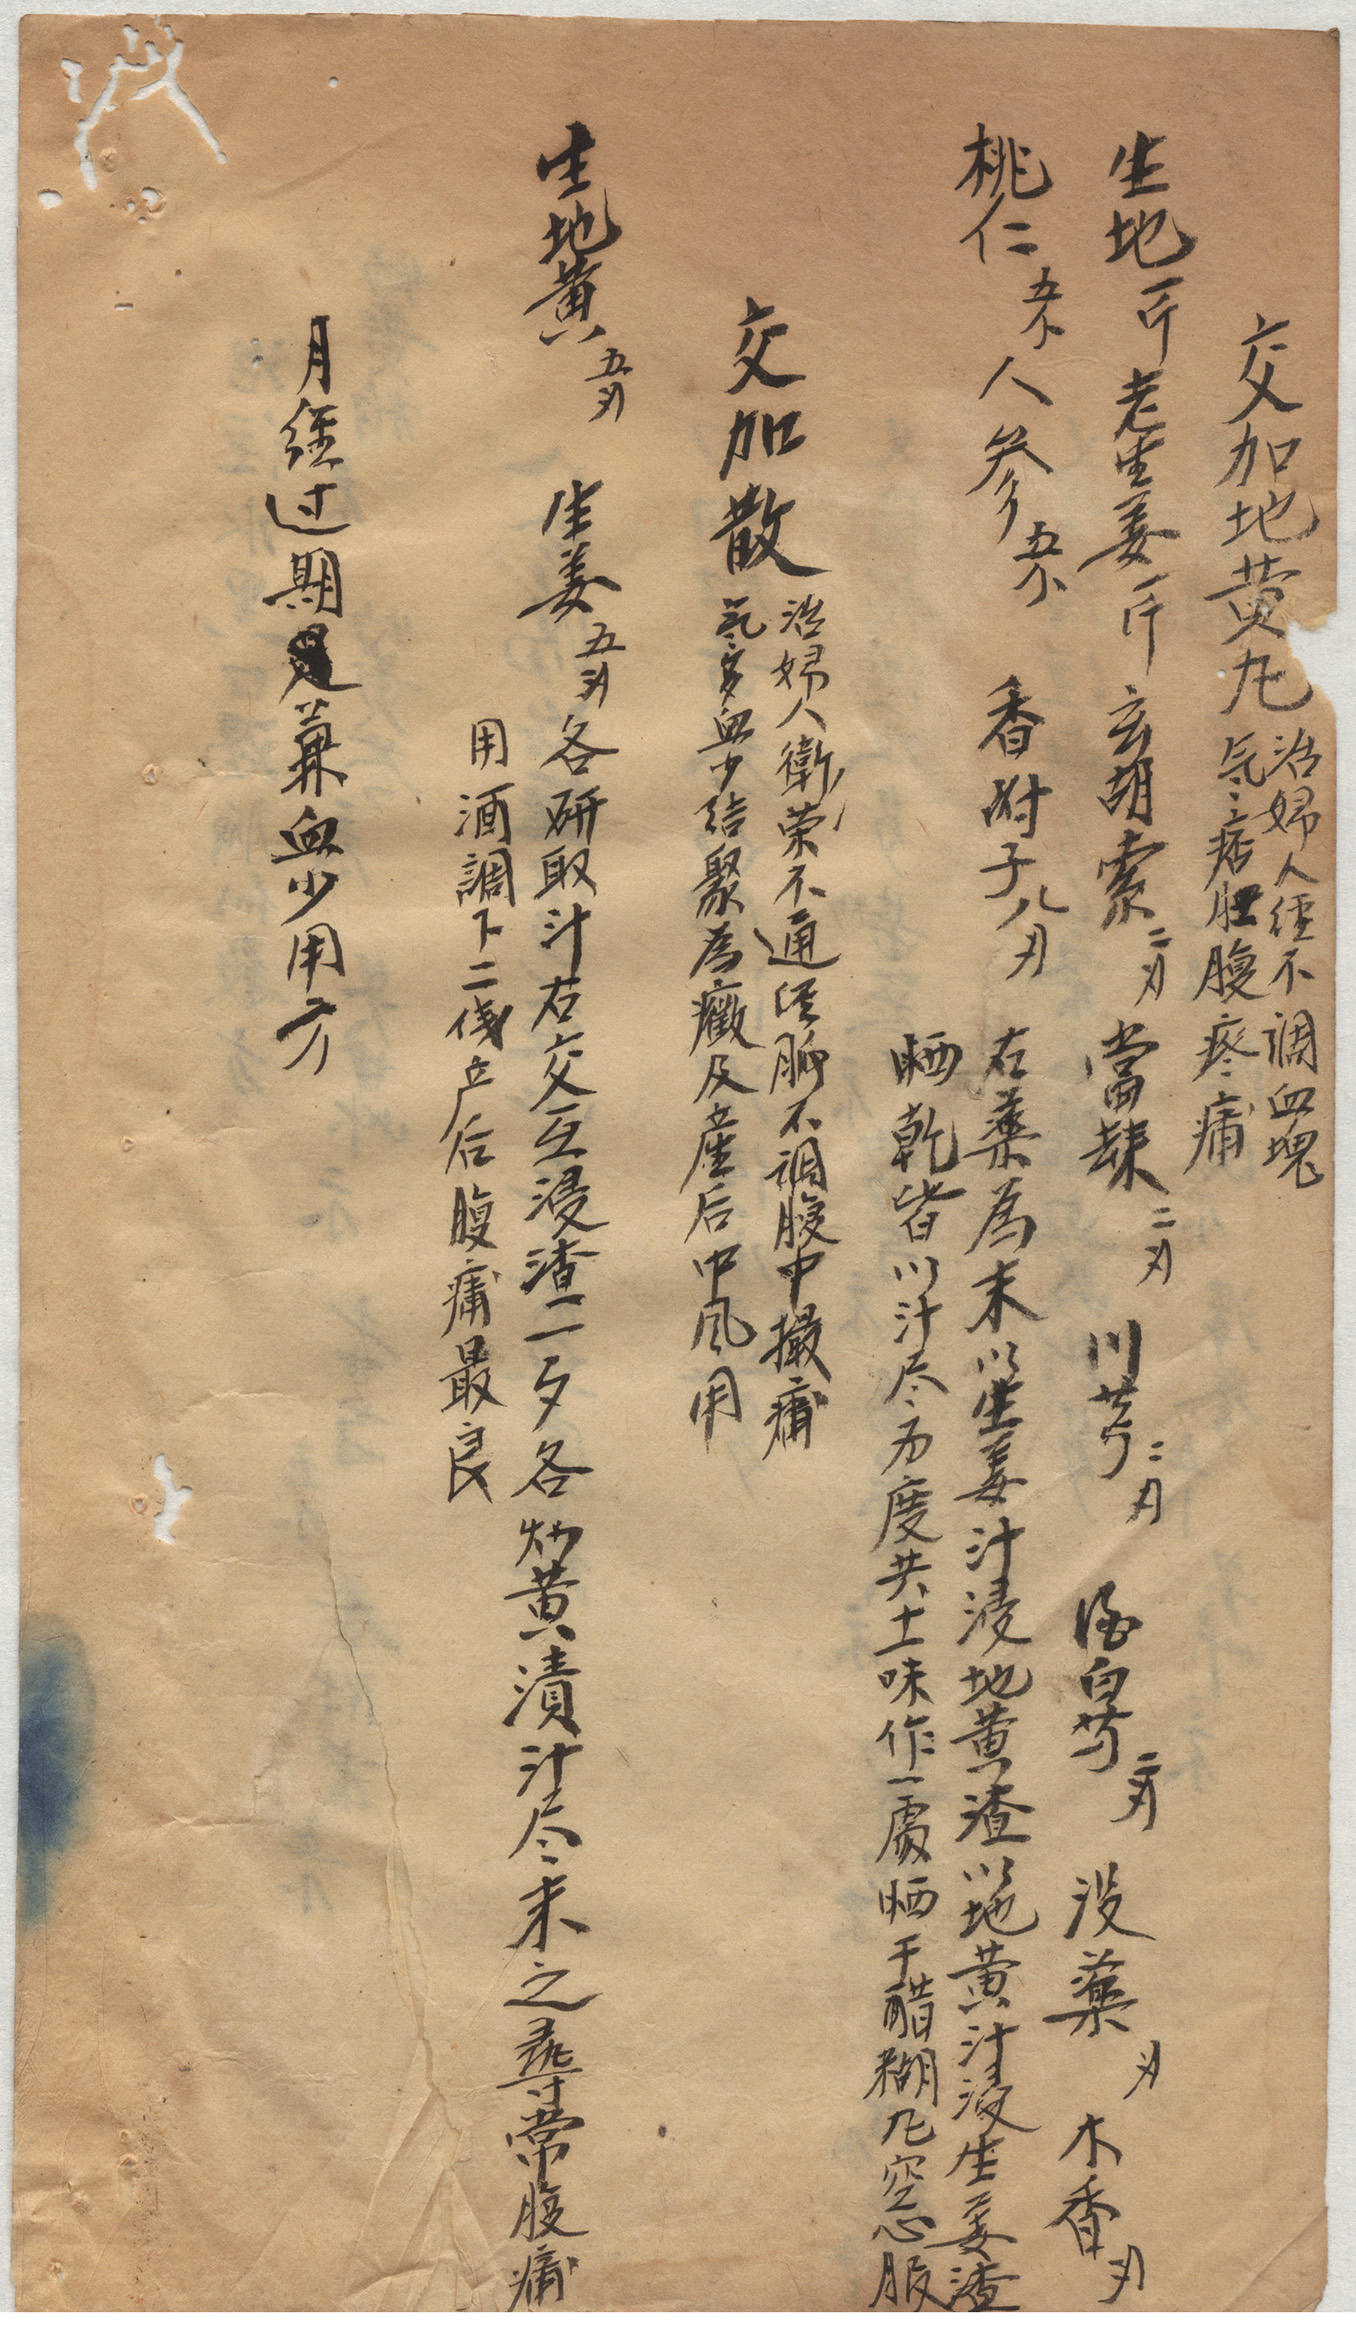 交加地黄丸
治婦人經不調血塊
气痞肚腹疼痛
生地一斤老生姜一斤玄胡索二刃當歸二刃川芎二刃酒白芍二刃没藥刃木香刃
桃仁五人參五香附子八刃
右藥為末以生姜汁浸地黄渣以地黄汁浸生姜渣
晒乾皆以汁尽为度共十一味作一處晒干醋糊凡空心服
交加散
治婦人衛荣不通經脈不調腹中撮痛
气多血少结聚為癥及産后中风用
生地黄五刃生姜五刃各研取汁右交互浸渣一夕各炒黄漬汁尽末之尋常腹痛
用酒調下二戋产后腹痛最良
月經过期是兼血少用方